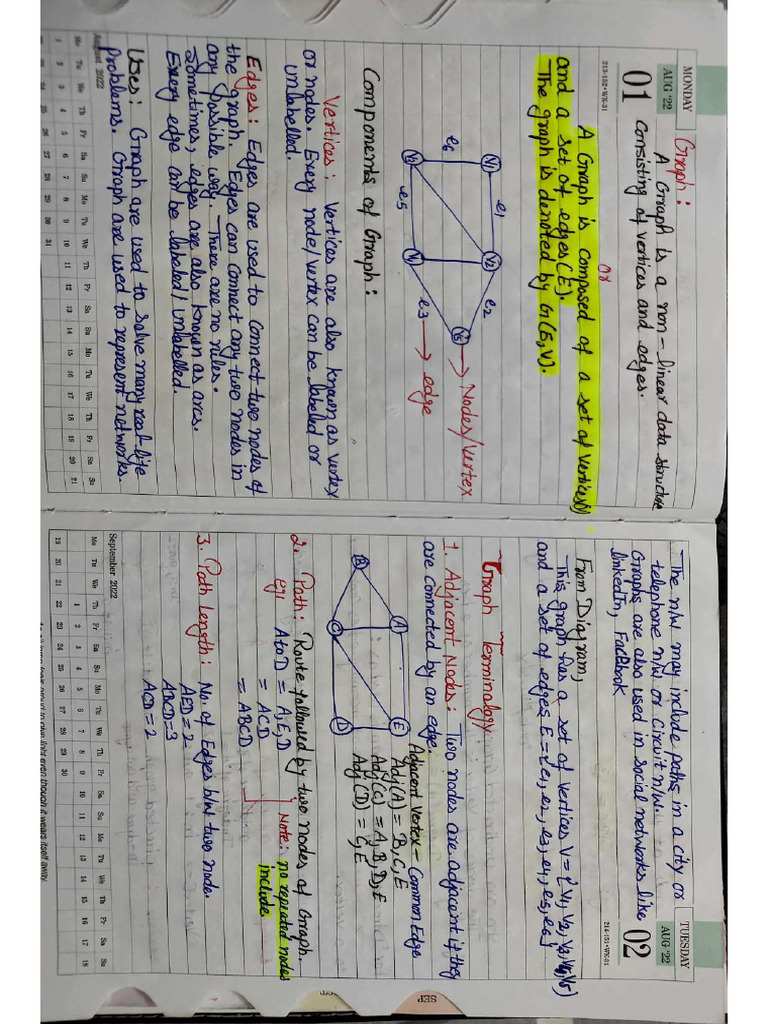 MONDAY
AUG '22
01
213-152•WK-31
Graph:
A Graph is a non-linear data structure
consisting of vertices and edges.
or
A Graph is composed of a set of vertices(V)
and a set of edges(E).
The graph is denoted by G(E,V).
V1
e1
V2
e2
V5
→ Nodes/Vertex
e6
e5
e3 → edge
Components of Graph:
Vertices: Vertices are also known as vertex
or nodes. Every node/vertex can be labeled or
unlabelled.
Edges: Edges are used to connect two nodes of
the graph. Edges can connect any two nodes in
any possible way. There are no rules.
Sometimes, edges are also known as arcs.
Every edge can be labeled/unlabelled.
Uses: Graph are used to solve many real-life
problems. Graph are used to represent networks.
August 2022
Mo Tu We Th Fr Sa Su Mo Tu We Th Fr Sa Su Mo Tu We Th Fr Sa Su
1 2 3 4 5 6 7 8 9 10 11 12 13 14 15 16 17 18 19 20 21
22 23 24 25 26 27 28 29 30 31
TUESDAY
AUG '22
02
214-151•WK-31
The n/w may include paths in a city or
telephone n/w or circuit n/w.
Graphs are also used in social networks like
linkedIn, FaceBook
From Diagram,
This graph has a set of vertices V={V1, V2, V3, V4, V5}
and a set of edges E={e1, e2, e3, e4, e5, e6}
Graph Terminalogy
1. Adjacent Nodes: Two nodes are adjacent if they
are connected by an edge.
A
B
C
D
E
Adjacent Vertex - Common Edge
Adj(A) = B, C, E
Adj(C) = A, B, D, E
Adj(D) = C, E
2. Path: Route followed by two nodes of Graph.
eg; A to D = A, E, D
= ACD
= ABCD
Note: no repeated nodes
include
3. Path Length: No. of Edges b/w two node.
AED = 2
ABCD = 3
ACD = 2
September 2022
Mo Tu We Th Fr Sa Su Mo Tu We Th Fr Sa Su Mo Tu We Th Fr Sa Su
1 2 3 4 5 6 7 8 9 10 11 12 13 14 15 16 17 18
19 20 21 22 23 24 25 26 27 28 29 30
SEP